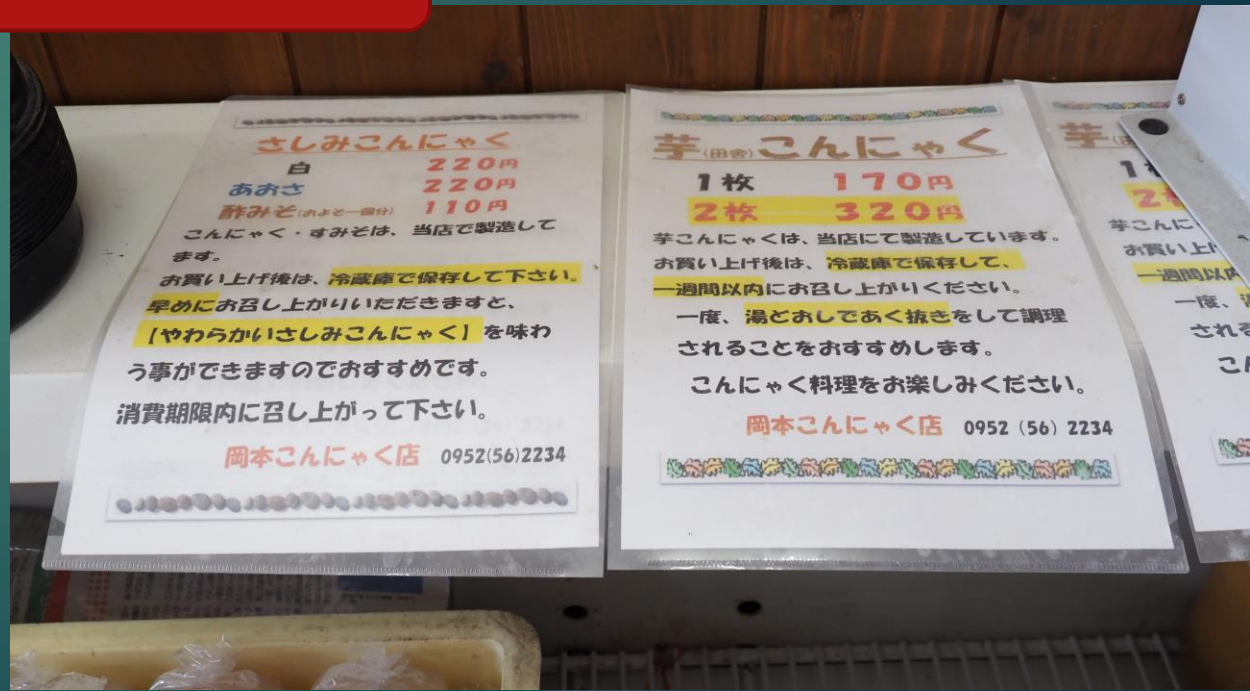 さしみこんにゃく
白 220円
あおさ 220円
酢みそ(およそ一個分) 110円
こんにゃく・すみそは、当店で製造して
ます。
お買い上げ後は、冷蔵庫で保存して下さい。
早めにお召し上がりいただきますと、
【やわらかいさしみこんにゃく】を味わ
う事ができますのでおすすめです。
消費期限内に召し上がって下さい。
岡本こんにゃく店 0952(56)2234
芋(田舎)こんにゃく
1枚 170円
2枚 320円
芋こんにゃくは、当店にて製造しています。
お買い上げ後は、冷蔵庫で保存して、
一週間以内にお召し上がりください。
一度、湯とおしであく抜きをして調理
されることをおすすめします。
こんにゃく料理をお楽しみください。
岡本こんにゃく店 0952(56)2234
芋
1
2
芋こんに
お買い上
一週間以内
一度、
され
こん